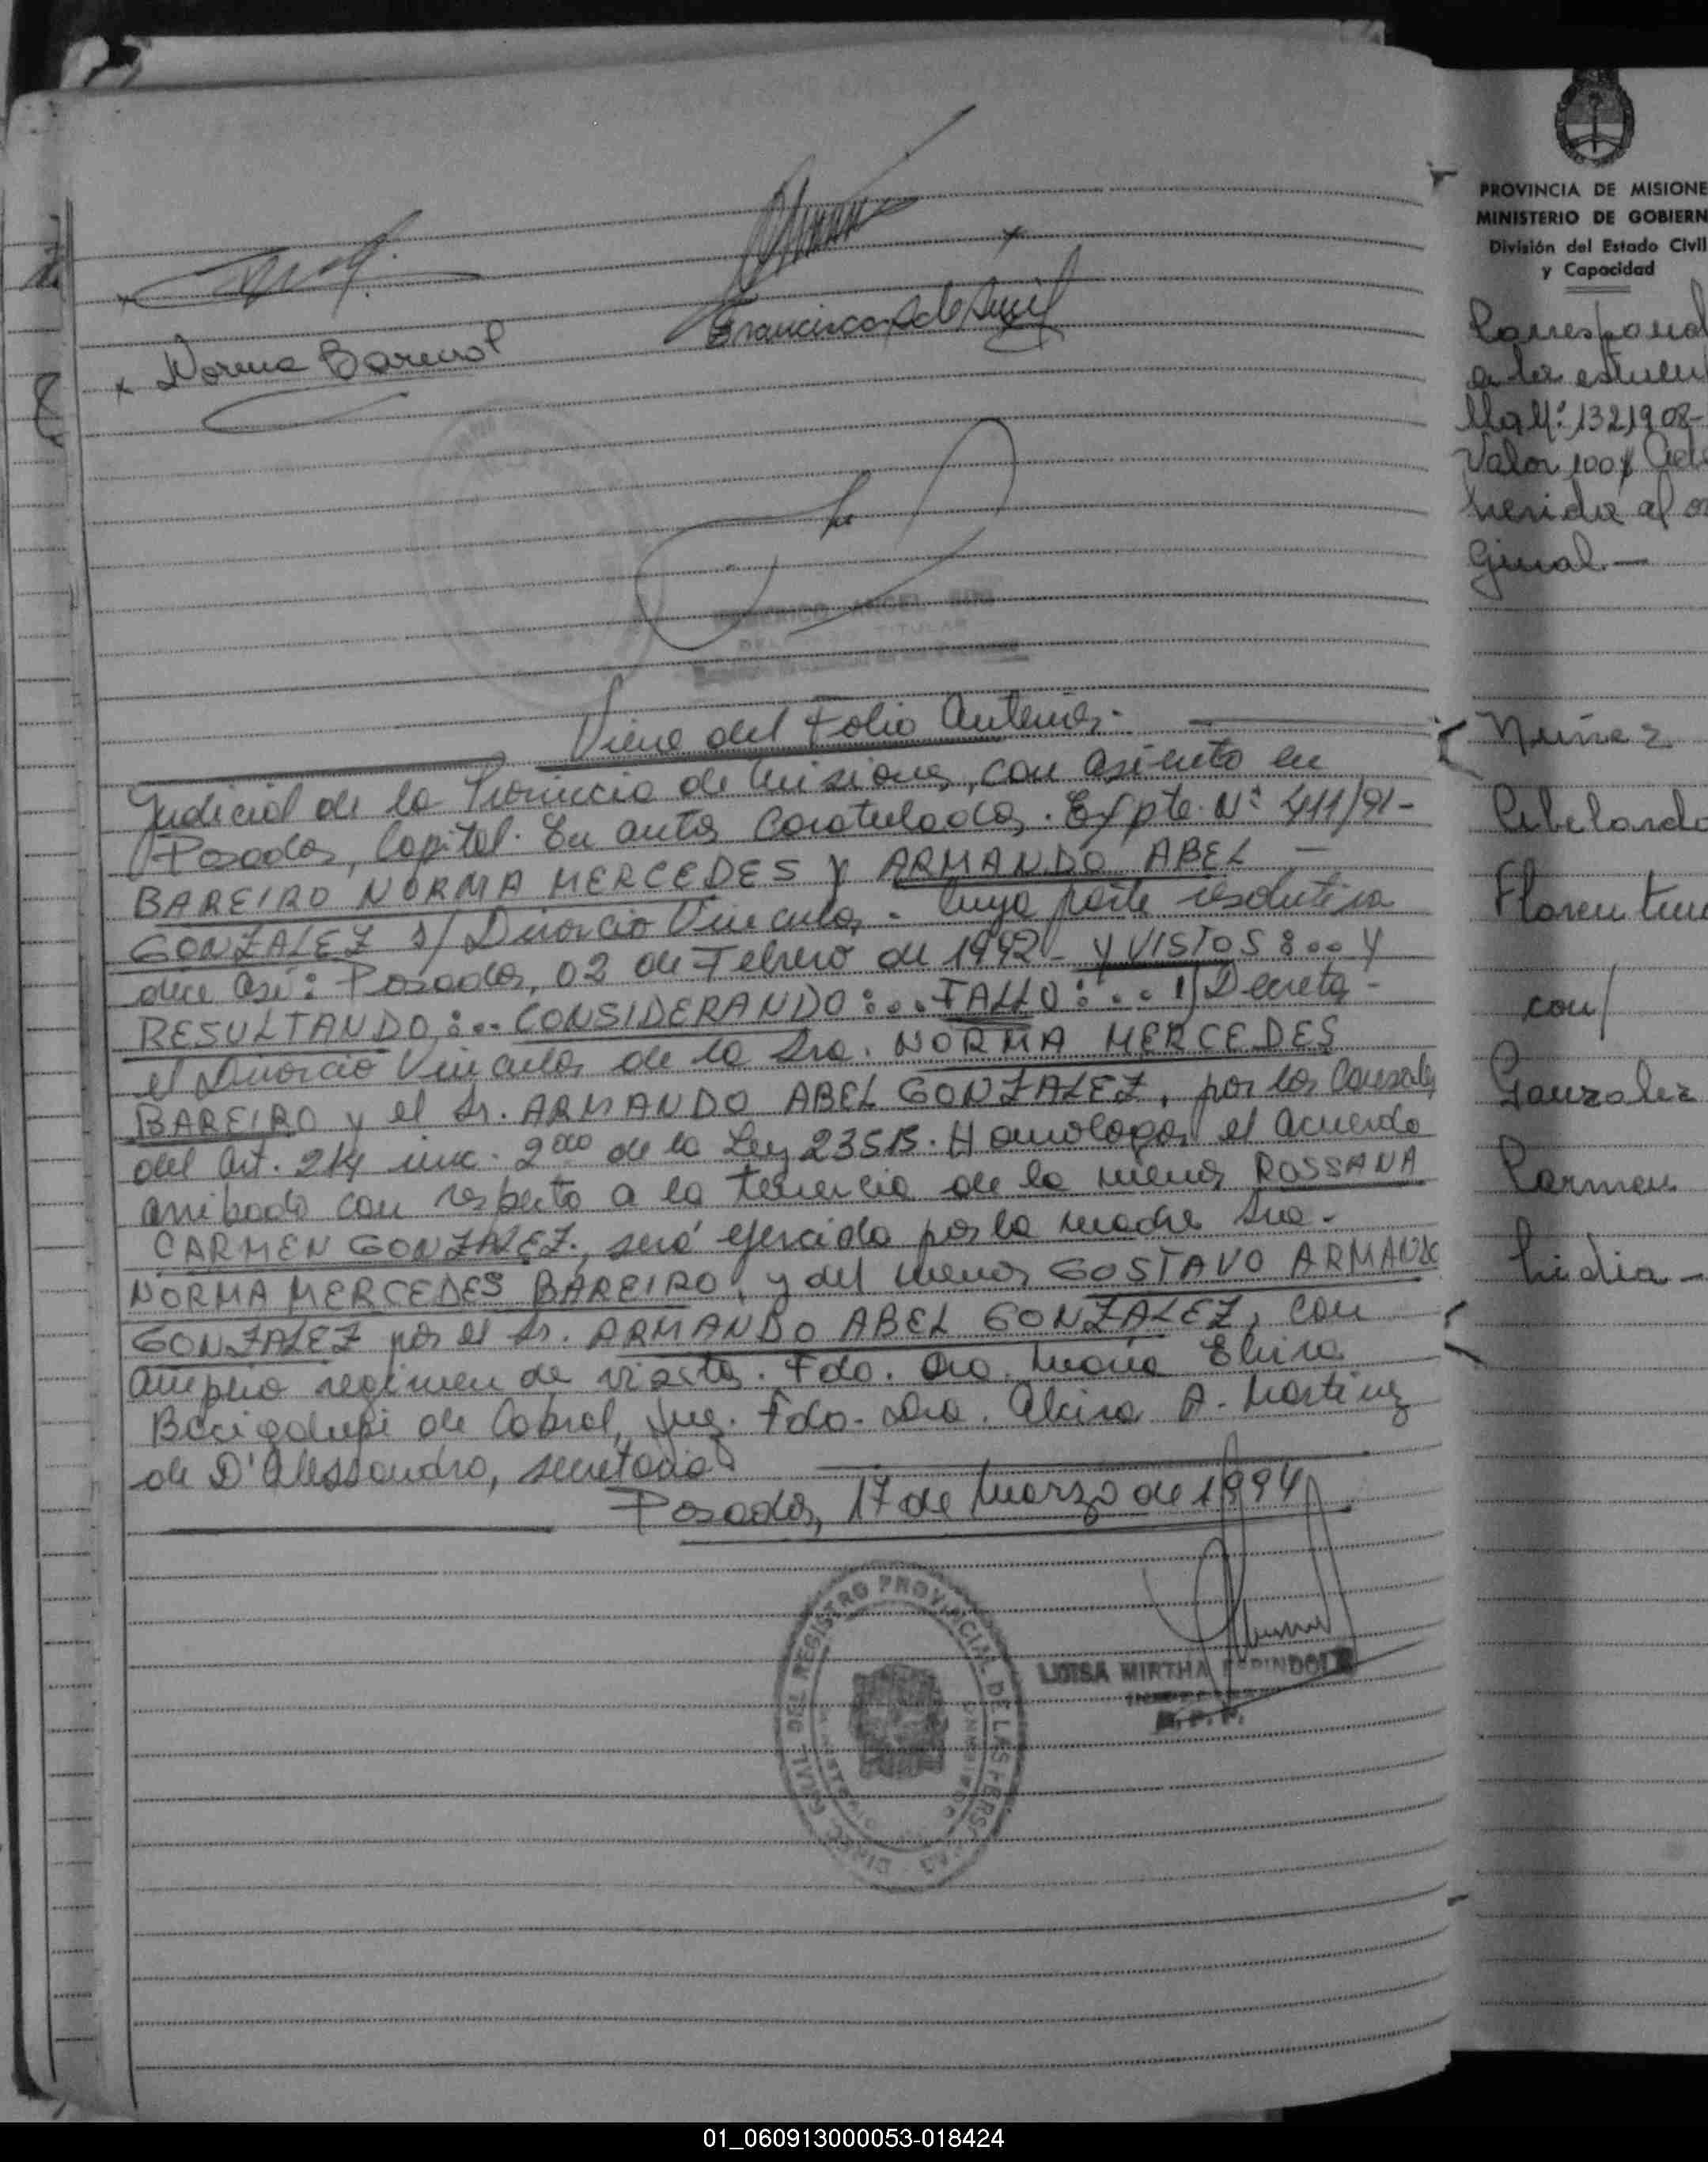 Norma Bareirol
Viene del Folio Anterior.-
Judicial de la Provincia de Misiones, con asiento en
Posadas, Capital. En autos Caratulados. Expte. Nº 411/91-
BAREIRO NORMA MERCEDES Y ARMANDO ABEL -
GONZALEZ s/ Divorcio Vincular.- Cuya parte resolutiva
dice así: Posadas, 02 de Febrero de 1992- Y VISTOS:.. Y
RESULTANDO:.. CONSIDERANDO:.. FALLO:.. 1) Decretar-
el Divorcio Vincular de la Sra. NORMA MERCEDES
BAREIRO y el Sr. ARMANDO ABEL GONZALEZ, por las Causales
del Art. 214 inc. 2do de la Ley 23515. Homologar el acuerdo
arribado con respecto a la tenencia de la menor ROSSANA
CARMEN GONZALEZ, será ejercida por la madre Sra.-
NORMA MERCEDES BAREIRO, y del menor GUSTAVO ARMANDO
GONZALEZ por el Sr. ARMANDO ABEL GONZALEZ, con
amplio regimen de visitas. Fdo. Dra. María Elvira
Bacigalupi de Cabral, Juez. Fdo. Dra. Alcira A. Martinez
de D'Alessandro, secretaria
Posadas, 17 de Marzo de 1994
DIREC. GRAL. DEL REGISTRO PROVINCIAL DE LAS PERSONAS
LUISA MIRTHA ESPINDOLA
R.P.P.
PROVINCIA DE MISIONE
MINISTERIO DE GOBIERN
División del Estado Civil
y Capacidad
Correspond
a la estam
lla Nº 1321908-
Valor 100$ Adh
herida al or
ginal.-
Nuñez
Abelardo
Floren
con/
Gonzalez
Carmen
Lidia -
01_060913000053-018424